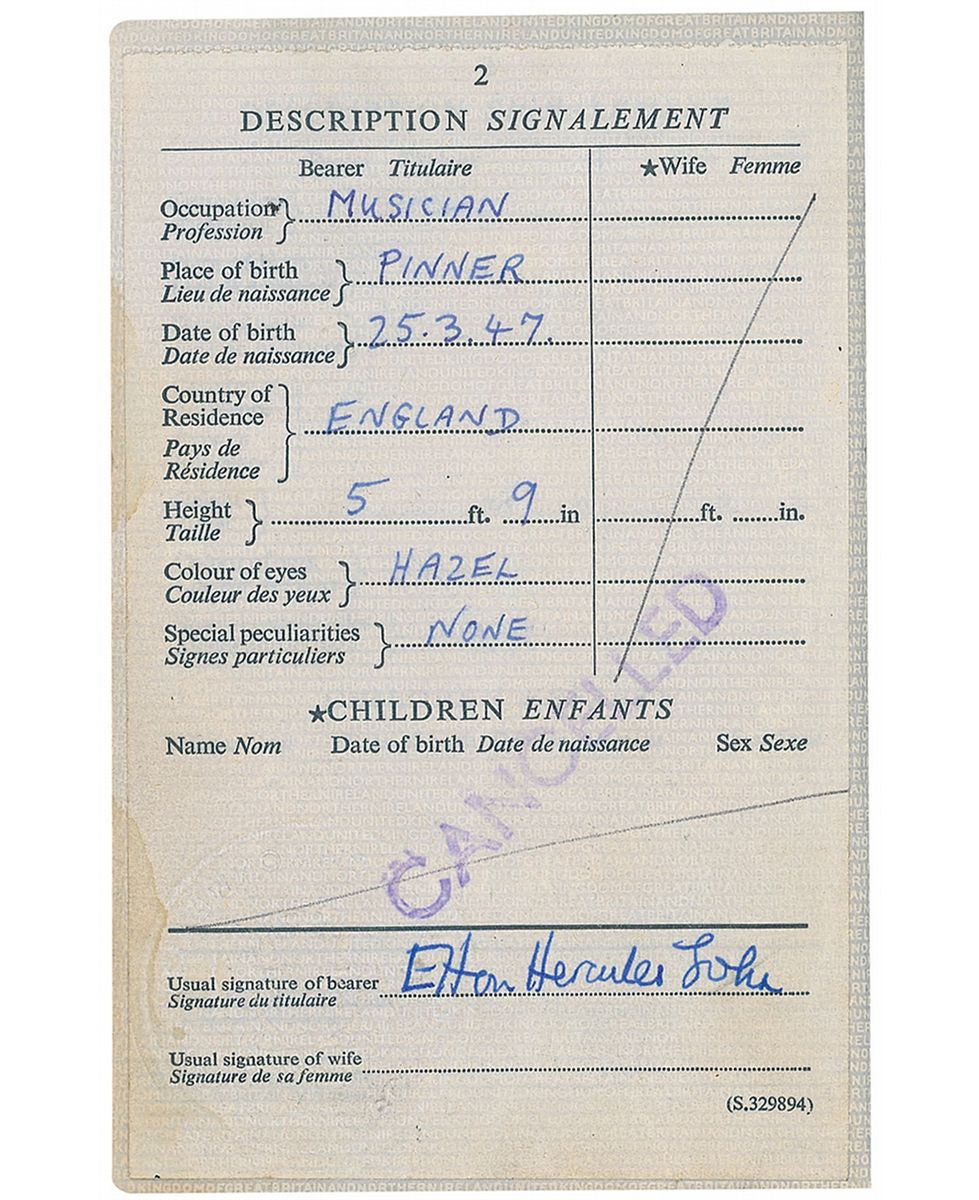 2
DESCRIPTION SIGNALEMENT
Bearer Titulaire ★Wife Femme
Occupation MUSICIAN
Profession
Place of birth PINNER
Lieu de naissance
Date of birth 25.3.47.
Date de naissance
Country of
Residence ENGLAND
Pays de
Résidence
Height 5 ft. 9 in ft. in.
Taille
Colour of eyes HAZEL
Couleur des yeux
Special peculiarities NONE
Signes particuliers
★CHILDREN ENFANTS
Name Nom Date of birth Date de naissance Sex Sexe
CANCELLED
Usual signature of bearer Elton Hercules John
Signature du titulaire
Usual signature of wife
Signature de sa femme
(S.329894)